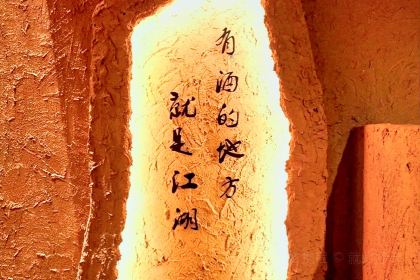 有酒的地方
就是江湖